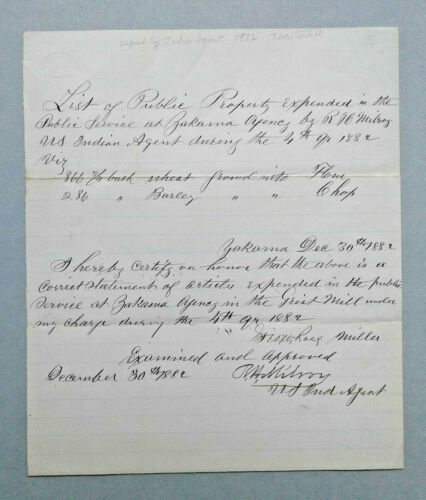 signed by Indian Agent 1882
List of Public Property Expended in the
Public Service at Yakama Agency by R H Milroy
US Indian Agent during the 4th qr 1882
Viz
bush wheat ground into Flour
286 " Barley " " Chop
Yakama Dec 30th 1882
I hereby certify on honor that the above is a
correct statement of articles expended in the public
service at Yakama Agency in the Grist Mill under
my charge during the 4th qr 1882
Miller
Examined and approved
December 30th 1882 R H Milroy
US Ind Agent